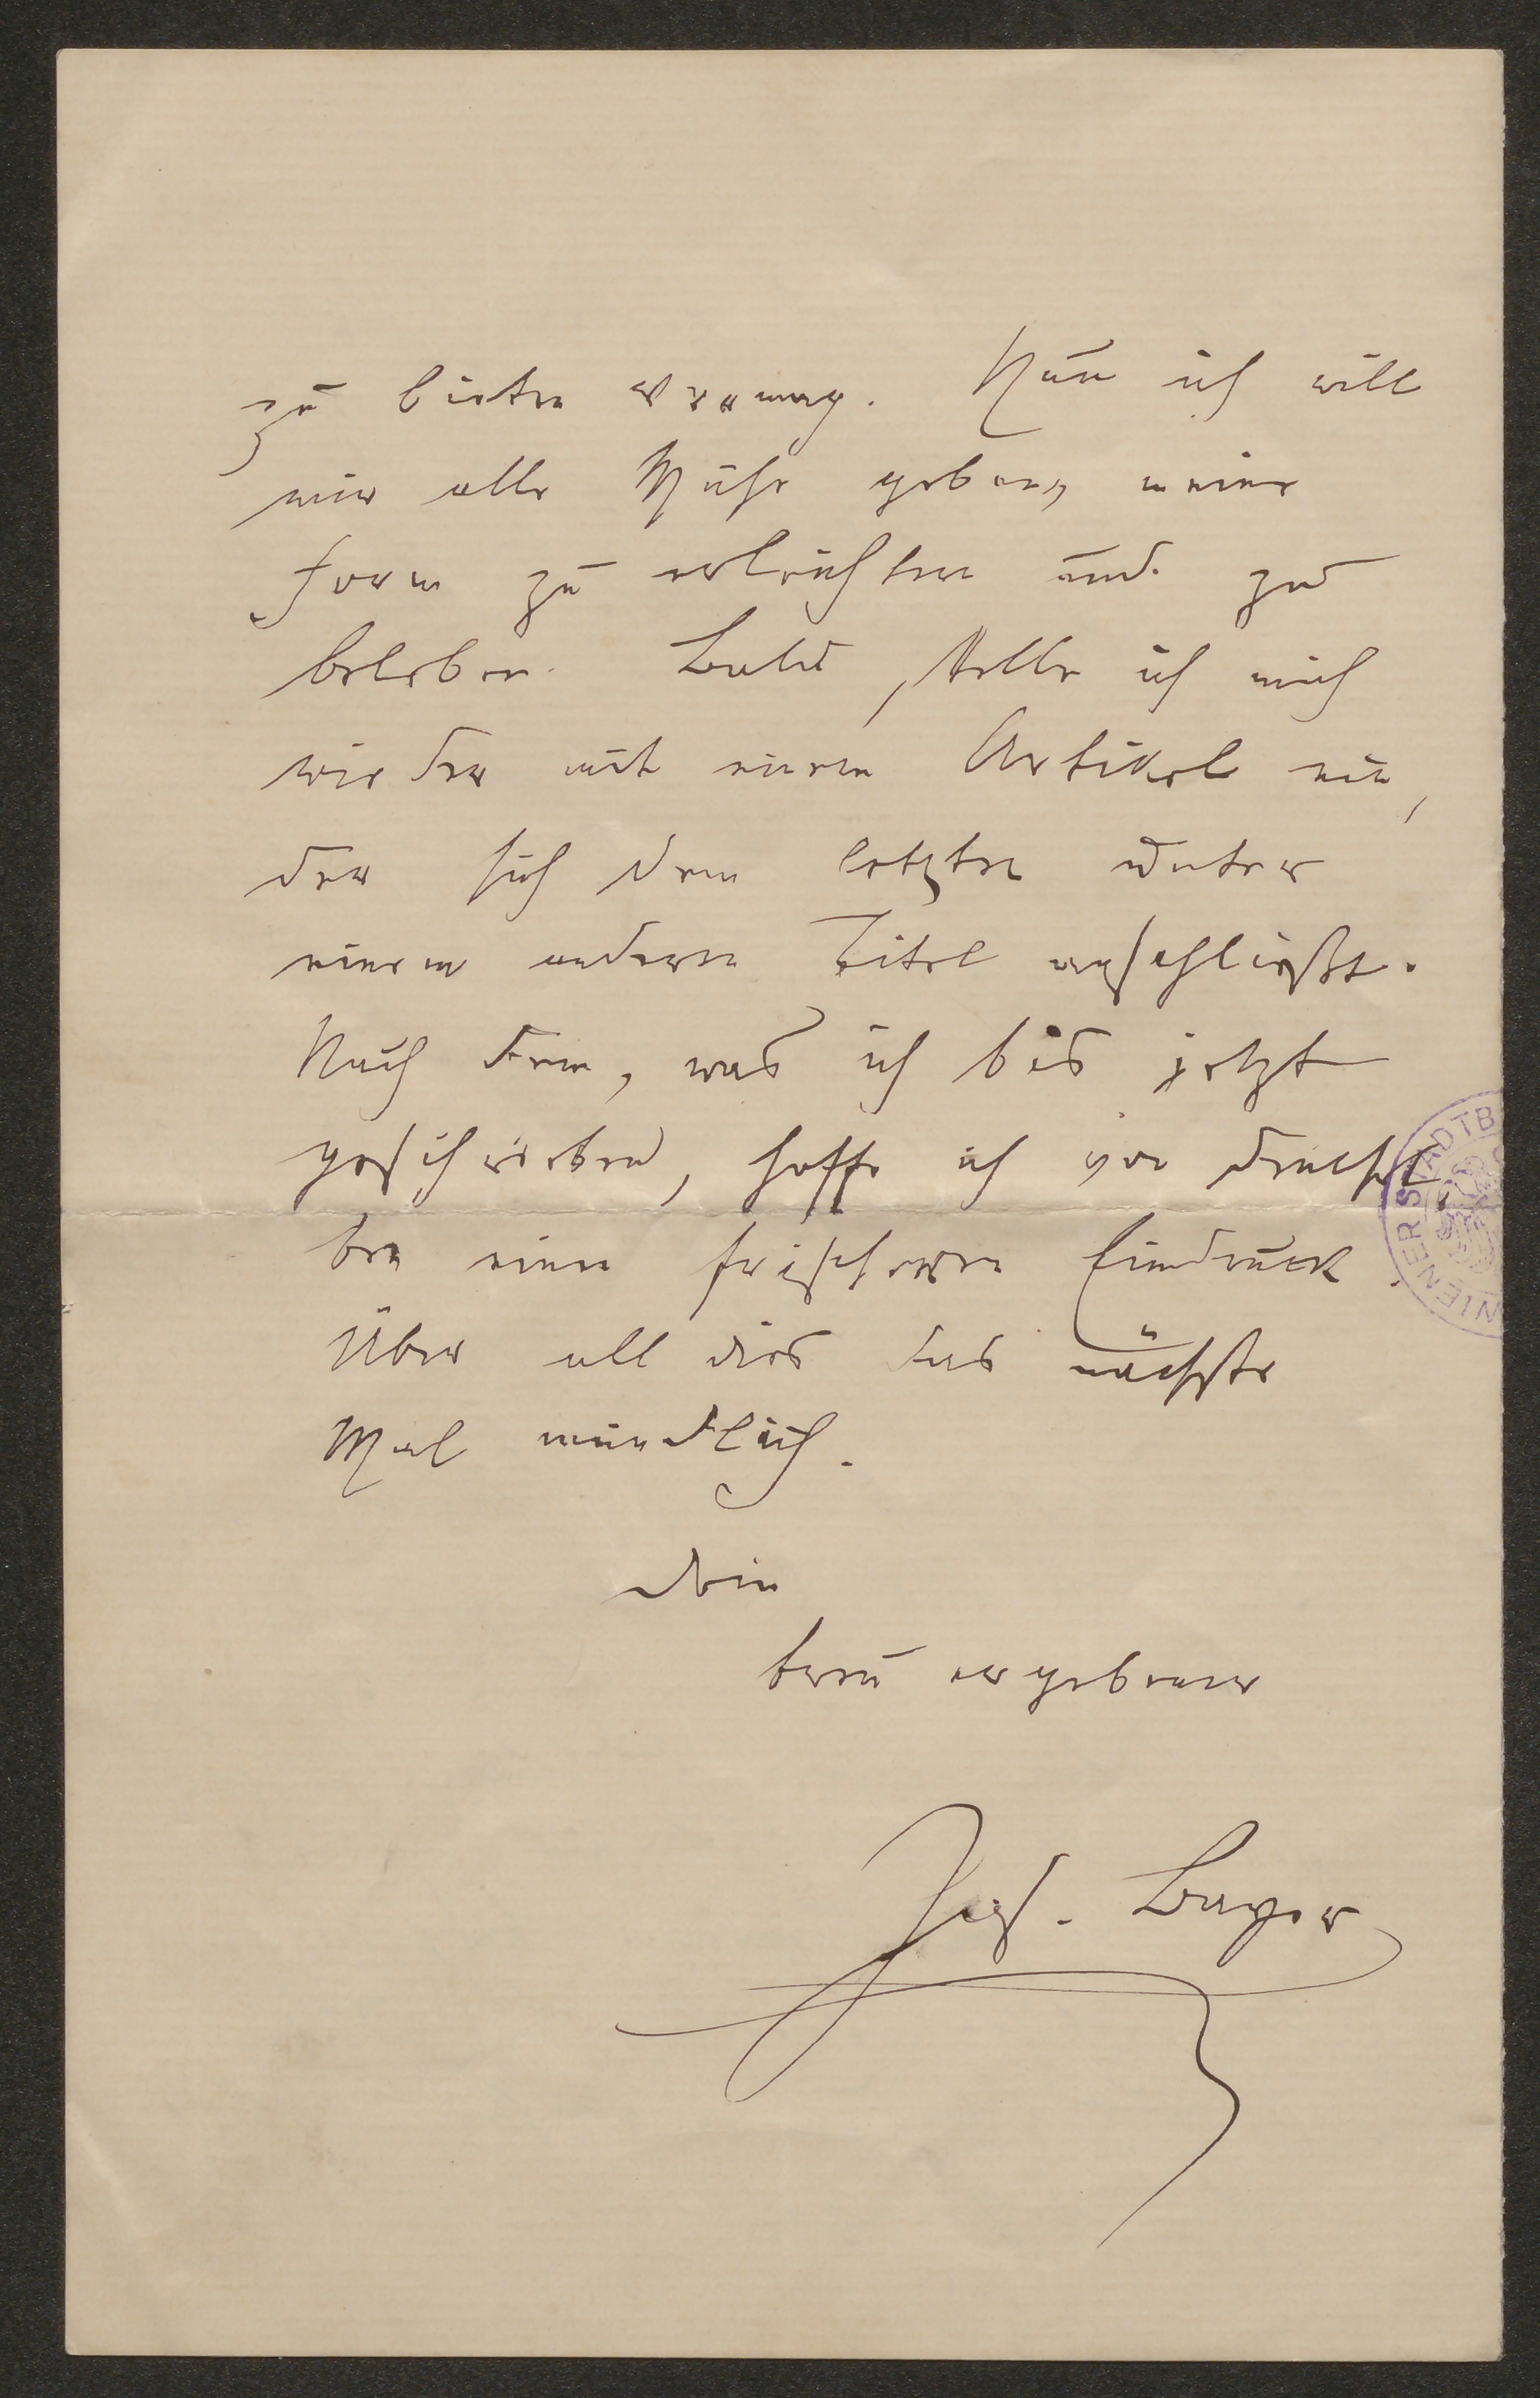 zu bieten vermag. Nun ich will
mir alle Mühe geben, meine
Form zu erleichtern und zu
beleben. Bald stelle ich mich
wieder mit einem Artikel ein,
der sich dem letzten unter
einem anderen Titel anschließt.
Nach dem, was ich bis jetzt
geschrieben, hoffe ich von demsel
ben einen frischeren Eindruck.
Über all dies das nächste
Mal mündlich.
Dein
treu ergebener
Jos. Bayer
WIENER STADTB